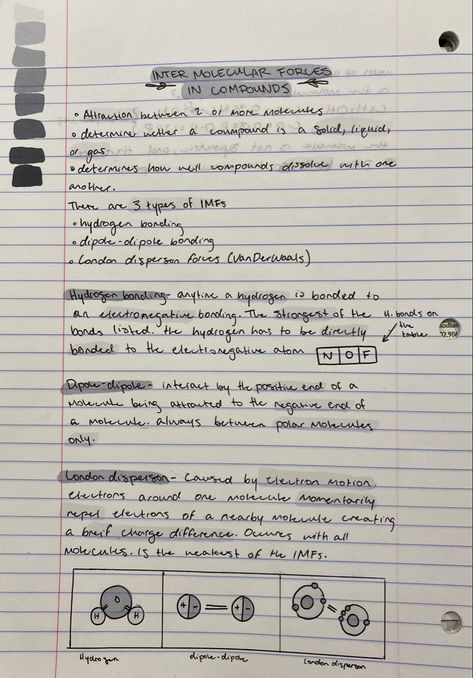 INTER MOLECULAR FORCES
IN COMPOUNDS
• Attraction between 2 or more molecules
• determine wether a coumpound is a solid, liquid,
or gas
• determines how well compounds dissolve with one
another.
There are 3 types of IMFs
• hydrogen bonding
• dipole-dipole bonding
• London disperson forces (VanDerWaals)
Hydrogen bonding- anytime a hydrogen is bonded to
an electronegative bonding. The strongest of the
bonds listed. the hydrogen has to be directly
bonded to the electronegative atom
N O F
H. bonds on
the
table
Dipole-dipole- interact by the positive end of a
molecule being attracted to the negative end of
a molecule. always between polar molecules
only.
London disperson- Caused by electron motion.
electrons around one molecule momentarily
repel electrons of a nearby molecule creating
a breif charge difference. Occures with all
molecules. is the weakest of the IMFs.
O
H H
+ - + -
Hydrogen
dipole-dipole
london disperson